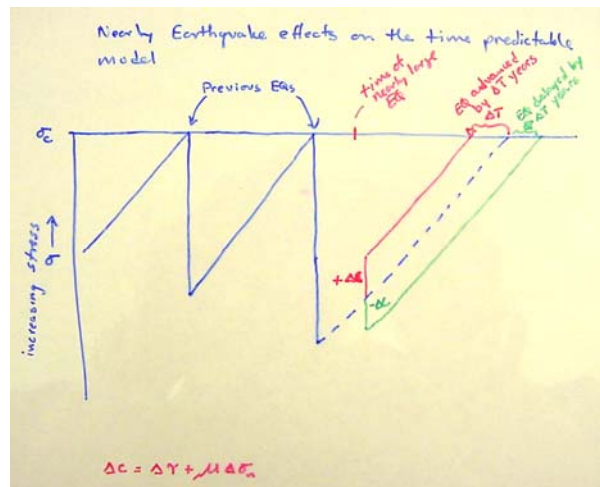 Nearby Earthquake effects on the time predictable
model
Previous EQs
time of
nearby large
EQ
EQ advanced
by ΔT years
ΔT
EQ delayed by
ΔT years
σc
increasing stress
σ
+Δc
-Δc
Δc = Δτ + μΔσn